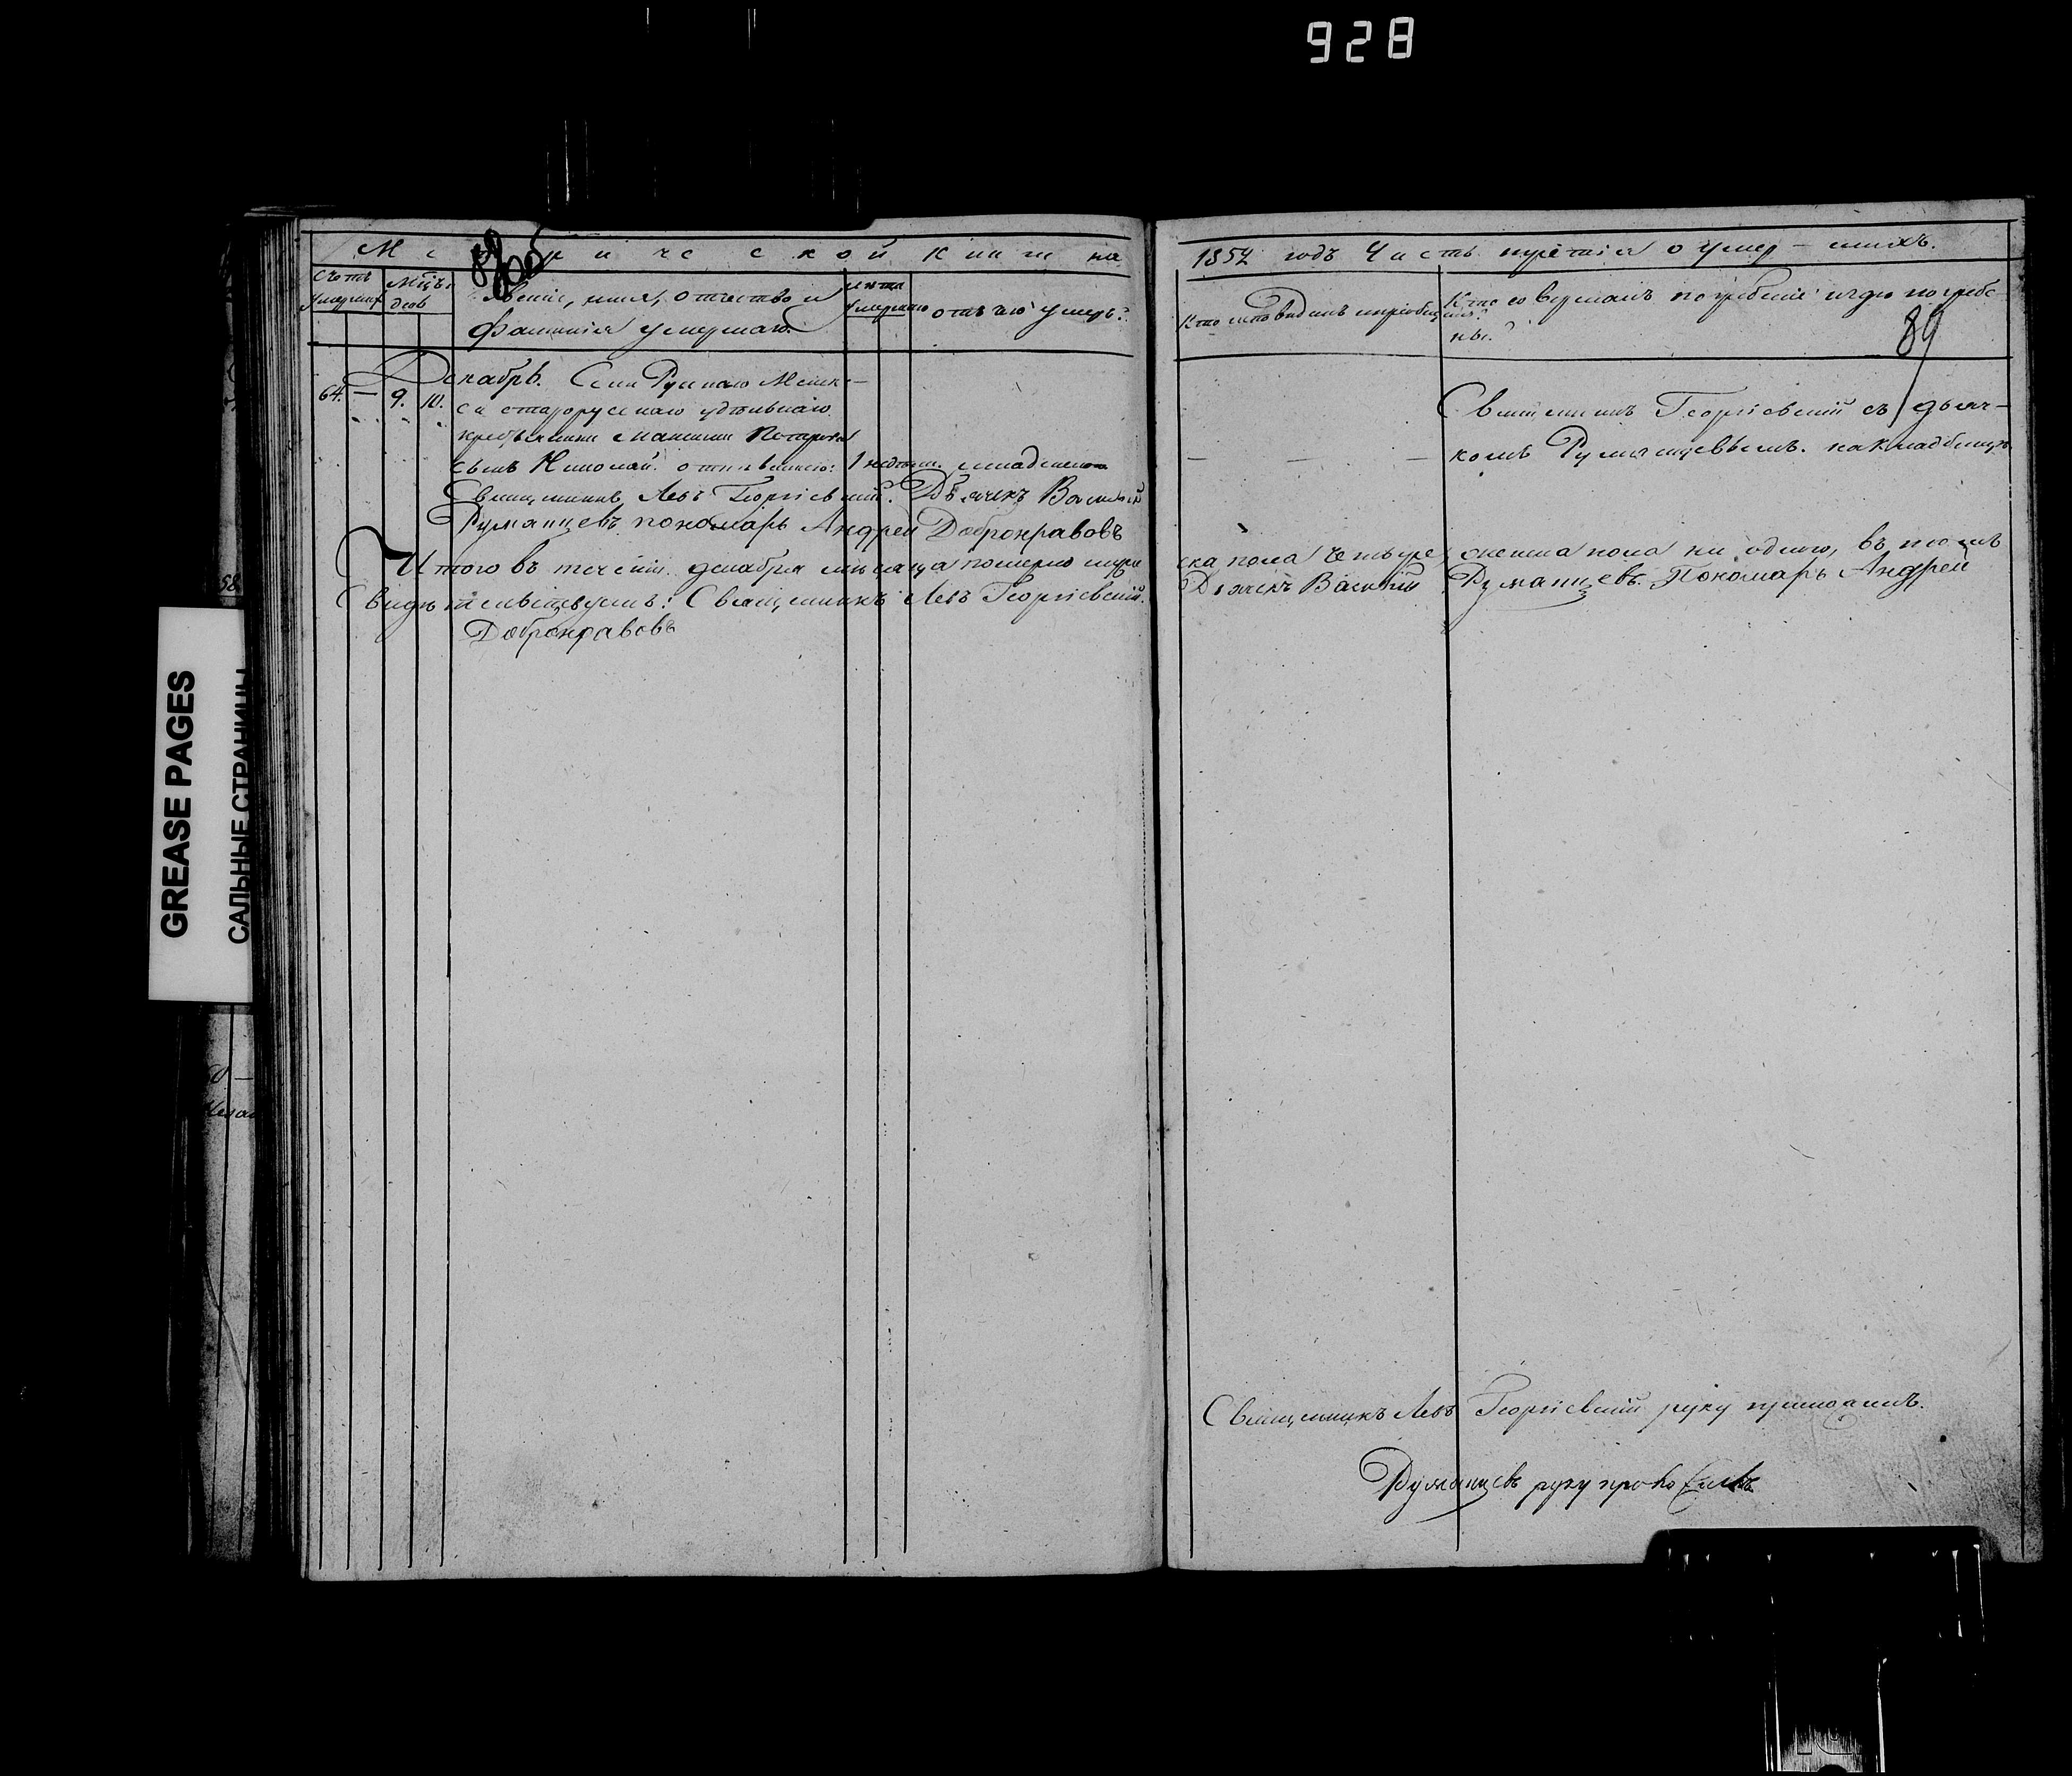 928
Метрической книги на
1852 годъ Часть третія о умер-шихъ.
88об
89
Счетъ умершихъ
Мцъ. и дней
Званіе, имя, отчество и
фамилія умершаго.
лѣта умершаго
отъ чего умеръ?
Кто исповѣдалъ и пріобщалъ?
Кто совершалъ погребеніе и гдѣ погребе-
ны?
Декабрь. Села
64. — 9. 10.
удѣльнаго
сынъ Николай. 1 недѣли.
— — —
Священникъ Георгіевскій съ дьяч-
комъ Румянцевымъ. на кладбищѣ
Священникъ Левъ Георгіевскій. Дьячекъ Василій
Румянцевъ пономарь Андрей Доброправовъ
Итого въ теченіи декабря мѣсяца померло муже
ска пола четыре, женска пола ни одного, въ томъ
Свидѣтельствуемъ: Священникъ Левъ Георгіевскій.
Дьячекъ Василій Румянцевъ. Пономарь Андрей
Доброправовъ
Священникъ Левъ Георгіевскій руку приложилъ.
Румянцевъ руку
GREASE PAGES
САЛЬНЫЕ СТРАНИЦЫ
58